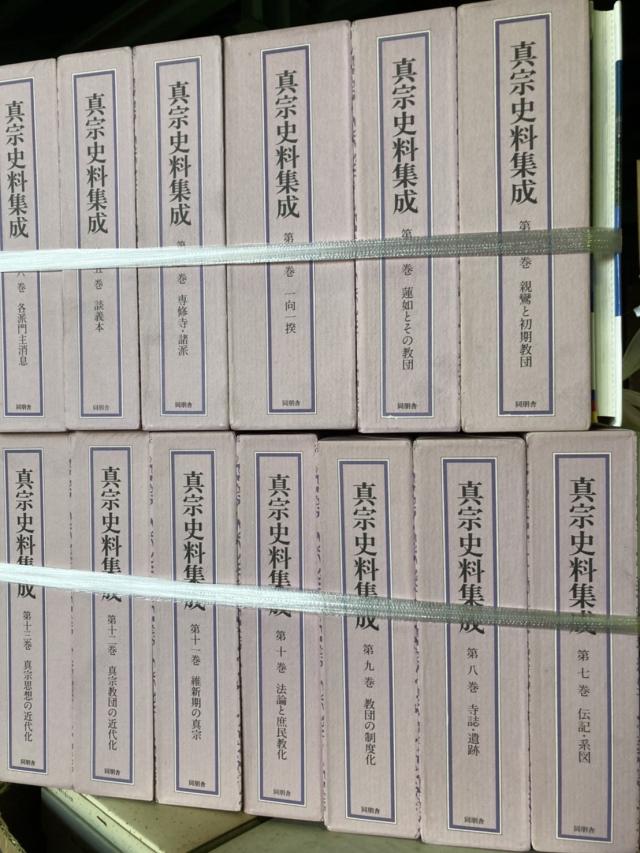 真宗史料集成 第 巻 親鸞と初期教団 同朋舎
真宗史料集成 第 巻 蓮如とその教団 同朋舎
真宗史料集成 第 巻 一向一揆 同朋舎
真宗史料集成 第 巻 専修寺・諸派 同朋舎
真宗史料集成 五巻 談義本 同朋舎
真宗史料集成 巻 各派門主消息 同朋舎
真宗史料集成 第七巻 伝記・系図 同朋舎
真宗史料集成 第八巻 寺誌・遺跡 同朋舎
真宗史料集成 第九巻 教団の制度化 同朋舎
真宗史料集成 第十巻 法論と庶民教化 同朋舎
真宗史料集成 第十一巻 維新期の真宗 同朋舎
真宗史料集成 第十二巻 真宗教団の近代化 同朋舎
真宗史料集成 第十三巻 真宗思想の近代化 同朋舎